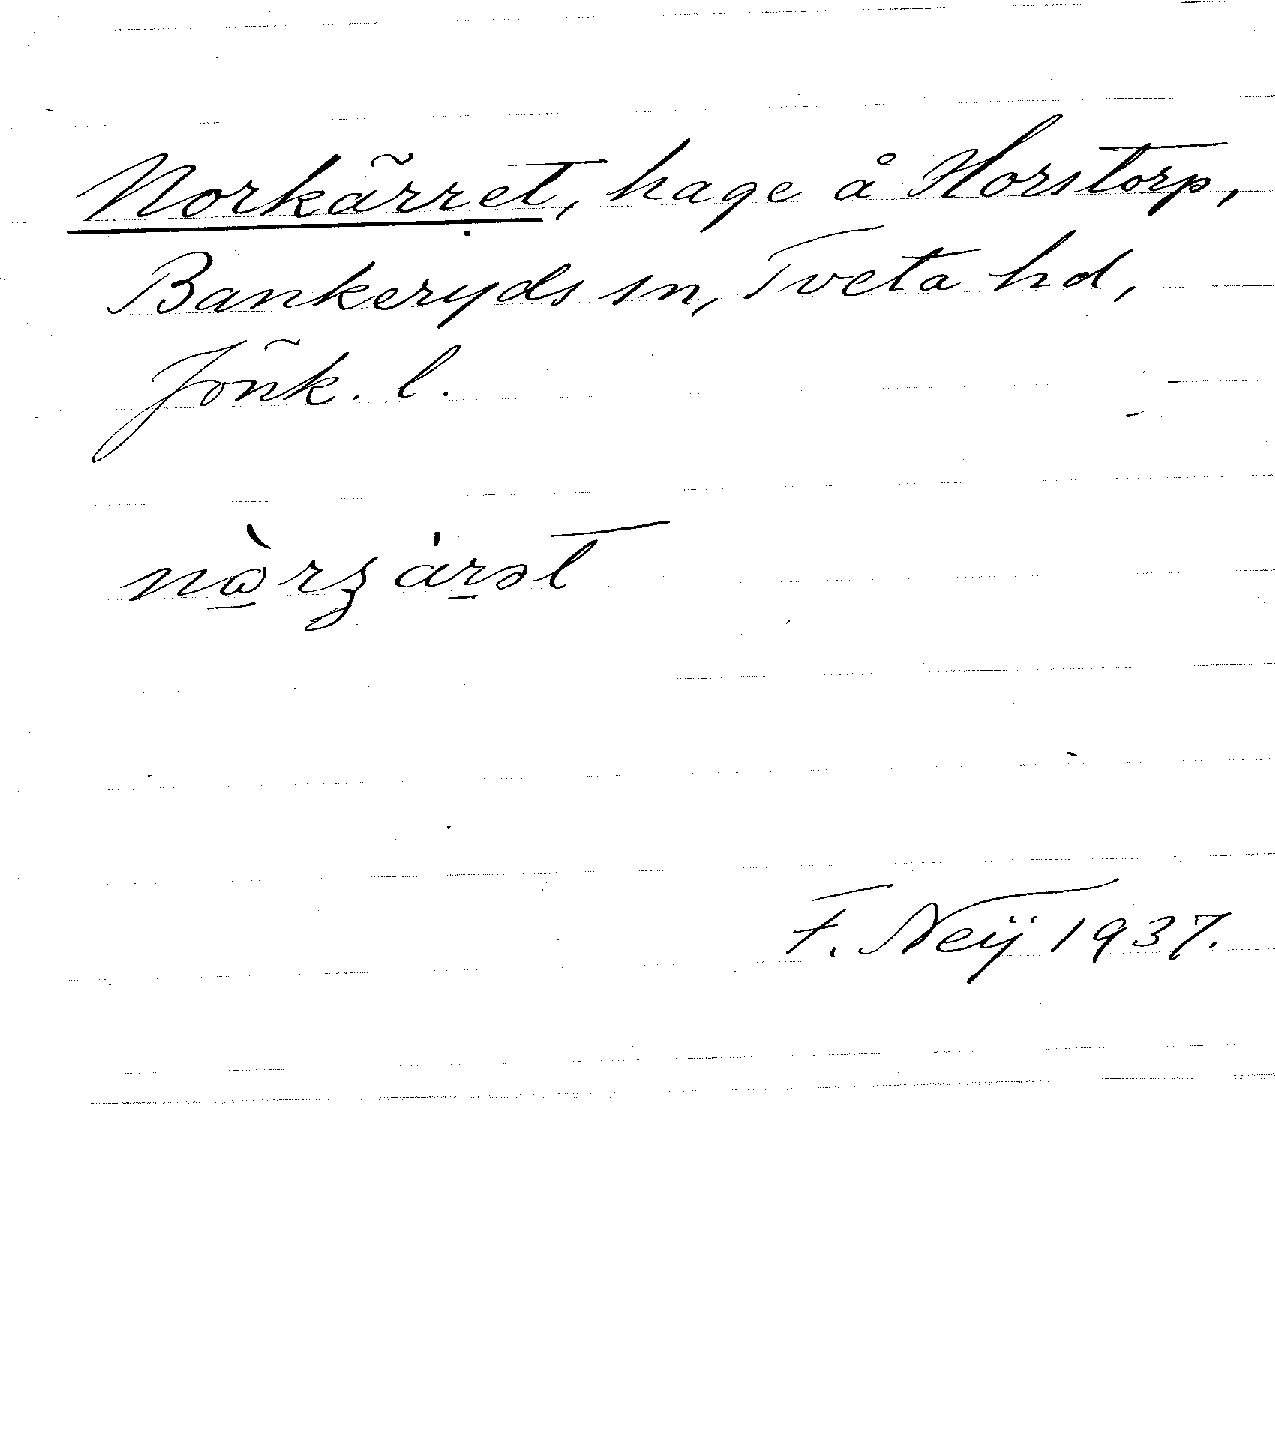 Norkärret, hage å Horstorp,
Bankeryds sn, Tveta hd,
Jönk. l.
F. Neij 1937.